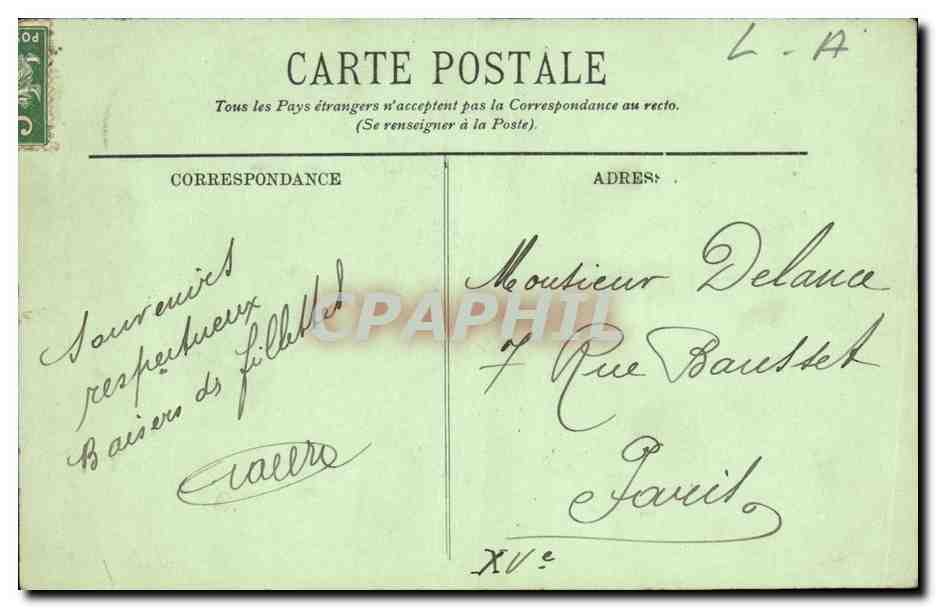 L - A
POS
CARTE POSTALE
Tous les Pays étrangers n'acceptent pas la Correspondance au recto.
(Se renseigner à la Poste).
CORRESPONDANCE
Souvenirs
respectueux
Baisers ds fillettes
ADRESS
Monsieur Delance
7 Rue Bausset
Paris
XVe
CPAPHIL